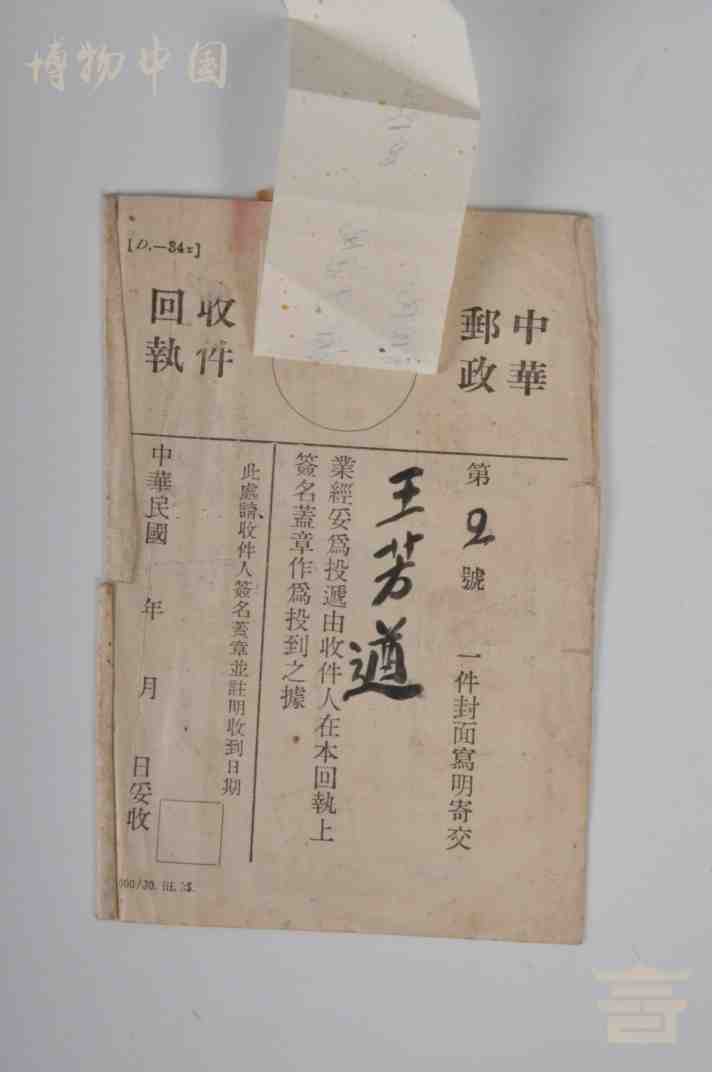 博物中国
[D.—34z]
中華
郵政
收件
回執
第2號 一件封面寫明寄交
王芳遒
業經妥爲投遞由收件人在本回執上
簽名蓋章作爲投到之據
此處請收件人簽名蓋章並註明收到日期
中華民國 年 月 日妥收